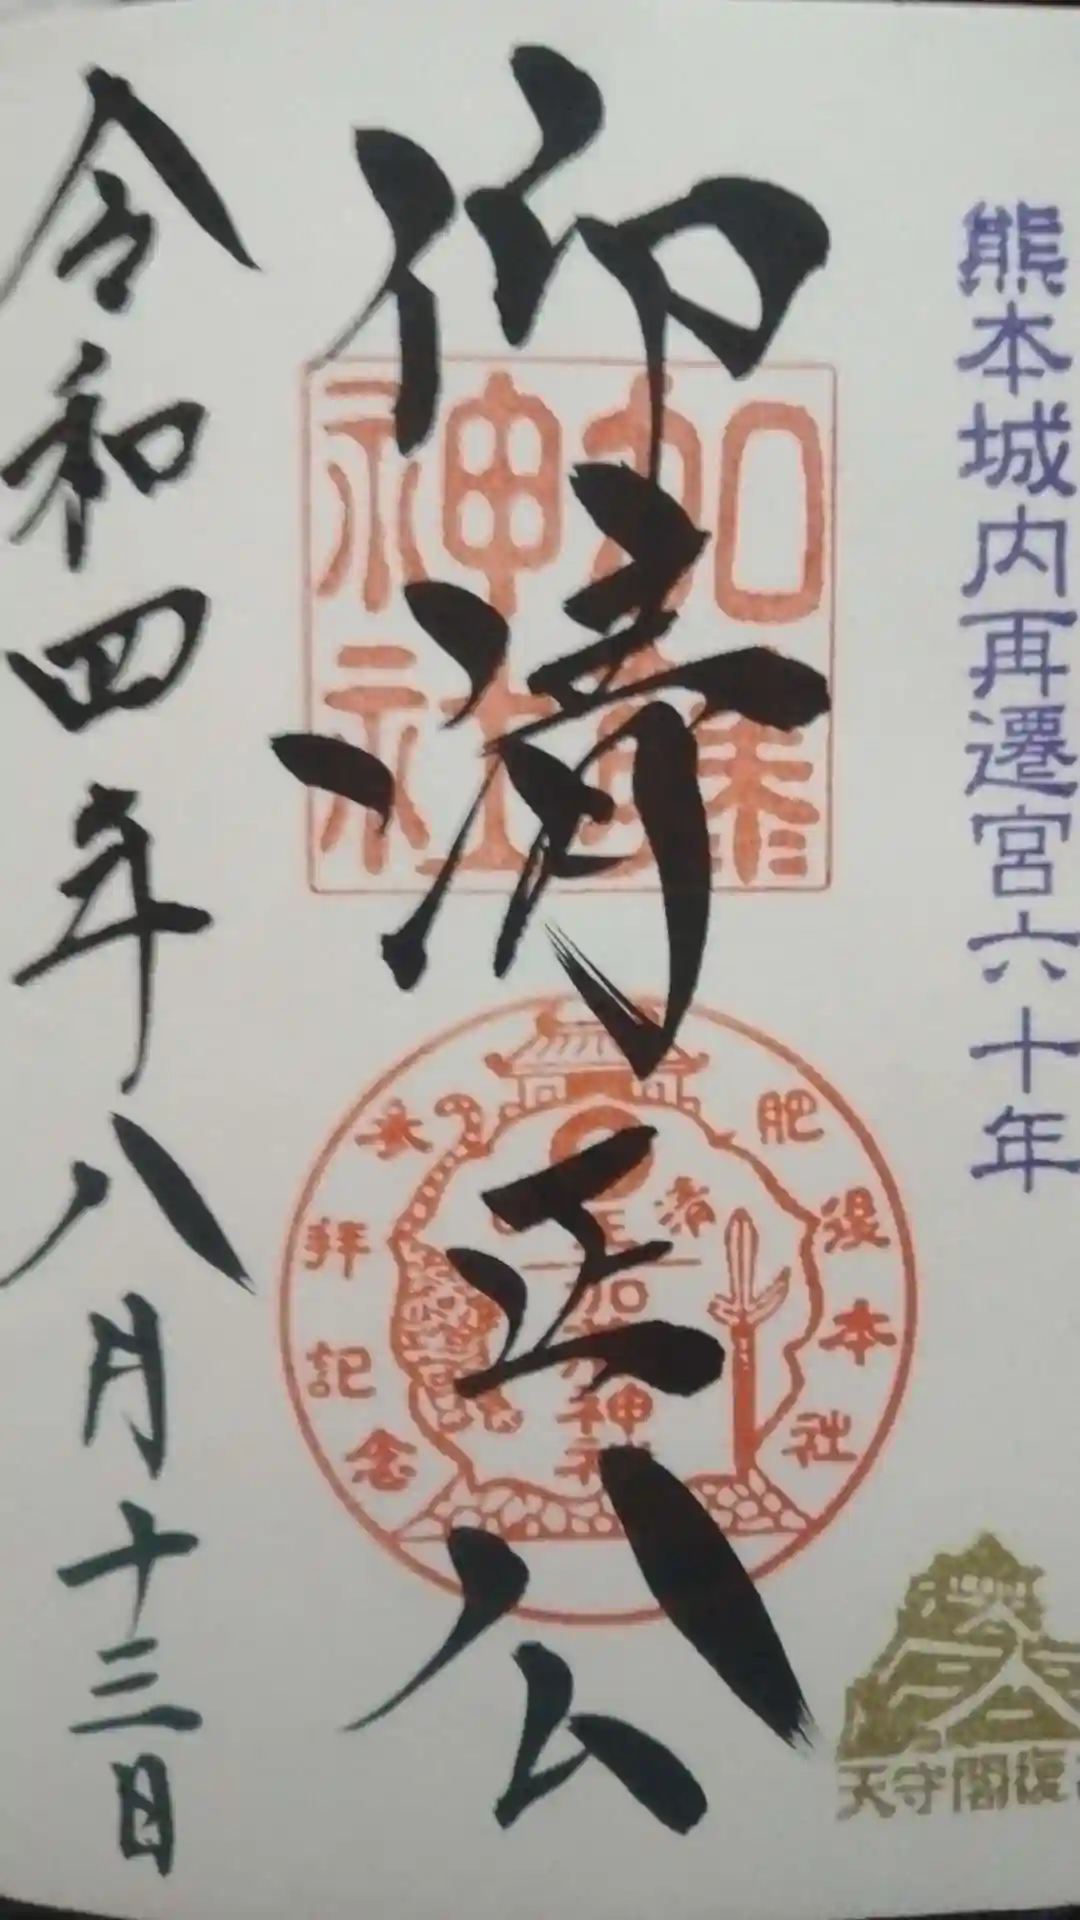 熊本城内再遷宮六十年
仰清正公
加藤
神社
肥後本社
参拝記念
清正
加藤神社
令和四年八月十三日
天守閣復